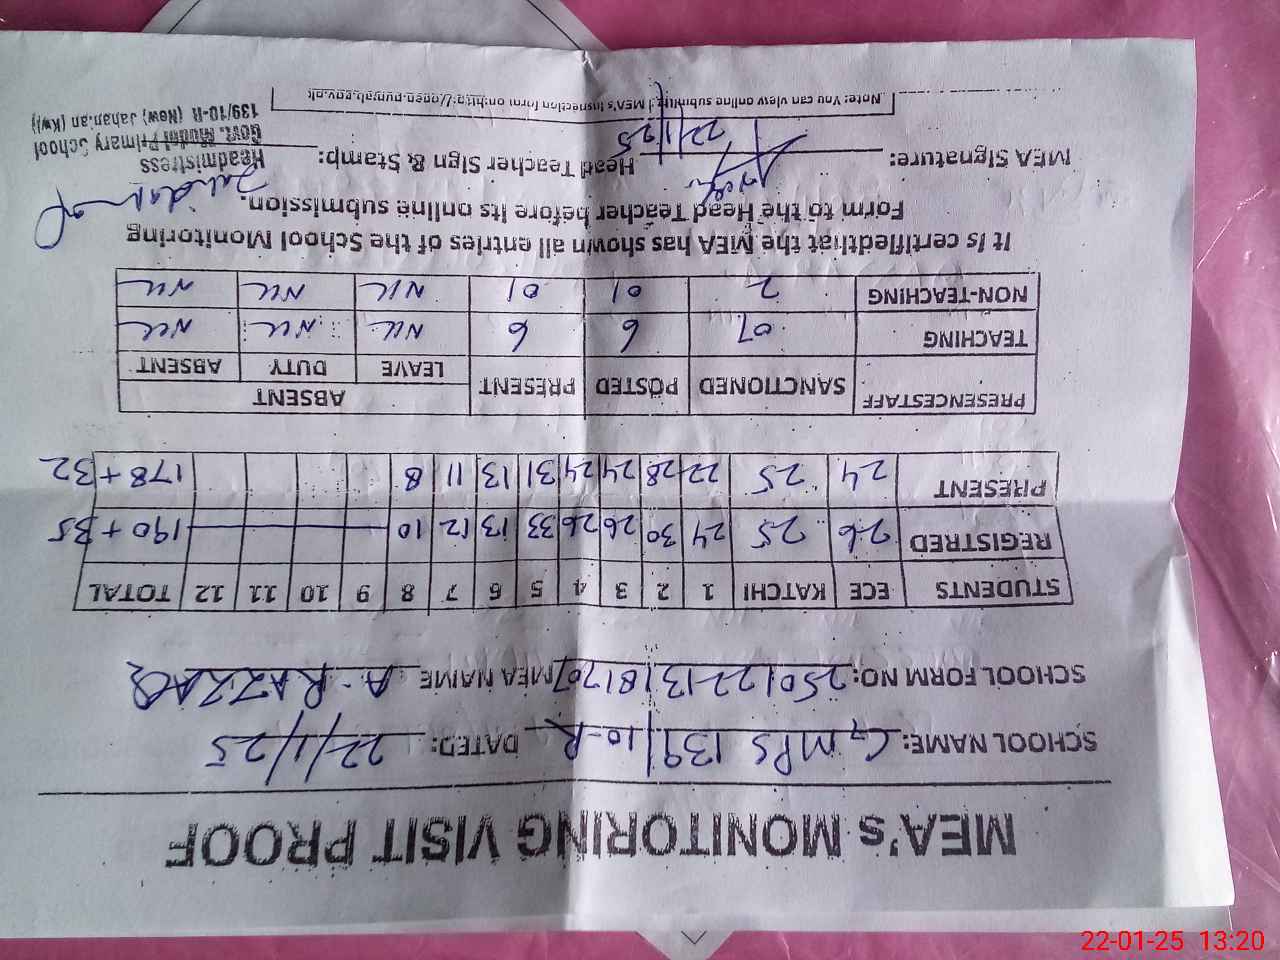 MEA's MONITORING VISIT PROOF
SCHOOL NAME: GMPS 139/10-R DATED: 22/1/25
SCHOOL FORM NO: 25012213181707 MEA NAME A. RAZZAQ
STUDENTS ECE KATCHI 1 2 3 4 5 6 7 8 9 10 11 12 TOTAL
REGISTRED 26 25 24 30 26 26 33 13 12 10 190 + 35
PRESENT 24 25 22 28 24 24 31 13 11 8 178 + 32
PRESENCESTAFF SANCTIONED POSTED PRESENT ABSENT
LEAVE DUTY ABSENT
TEACHING 07 6 6 NIL NIL NIL
NON-TEACHING 2 01 01 NIL NIL NIL
It is certifiedthat the MEA has shown all entries of the School Monitoring
Form to the Head Teacher before its online submission.
MEA Signature: 22/1/25 Head Teacher Sign & Stamp:
Headmistress
Govt. Model Primary School
139/10-R (New) Jahanian (Kwl)
Note: You can view online submitted MEA's Inspection form on:http://open.punjab.gov.pk
22-01-25 13:20